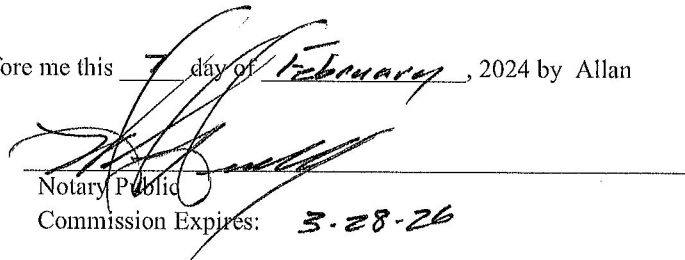 fore me this 7 day of February, 2024 by Allan
Notary Public
Commission Expires: 3-28-26